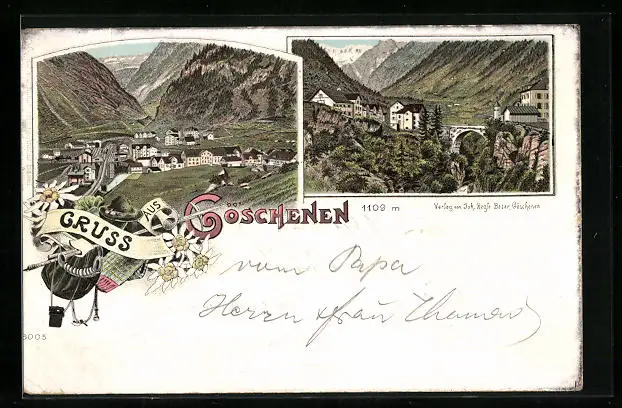 GRUSS AUS GÖSCHENEN
1109 m
Verlag von Joh. Regli Baser, Göschenen
vom Papa
Herrn & Frau
8005